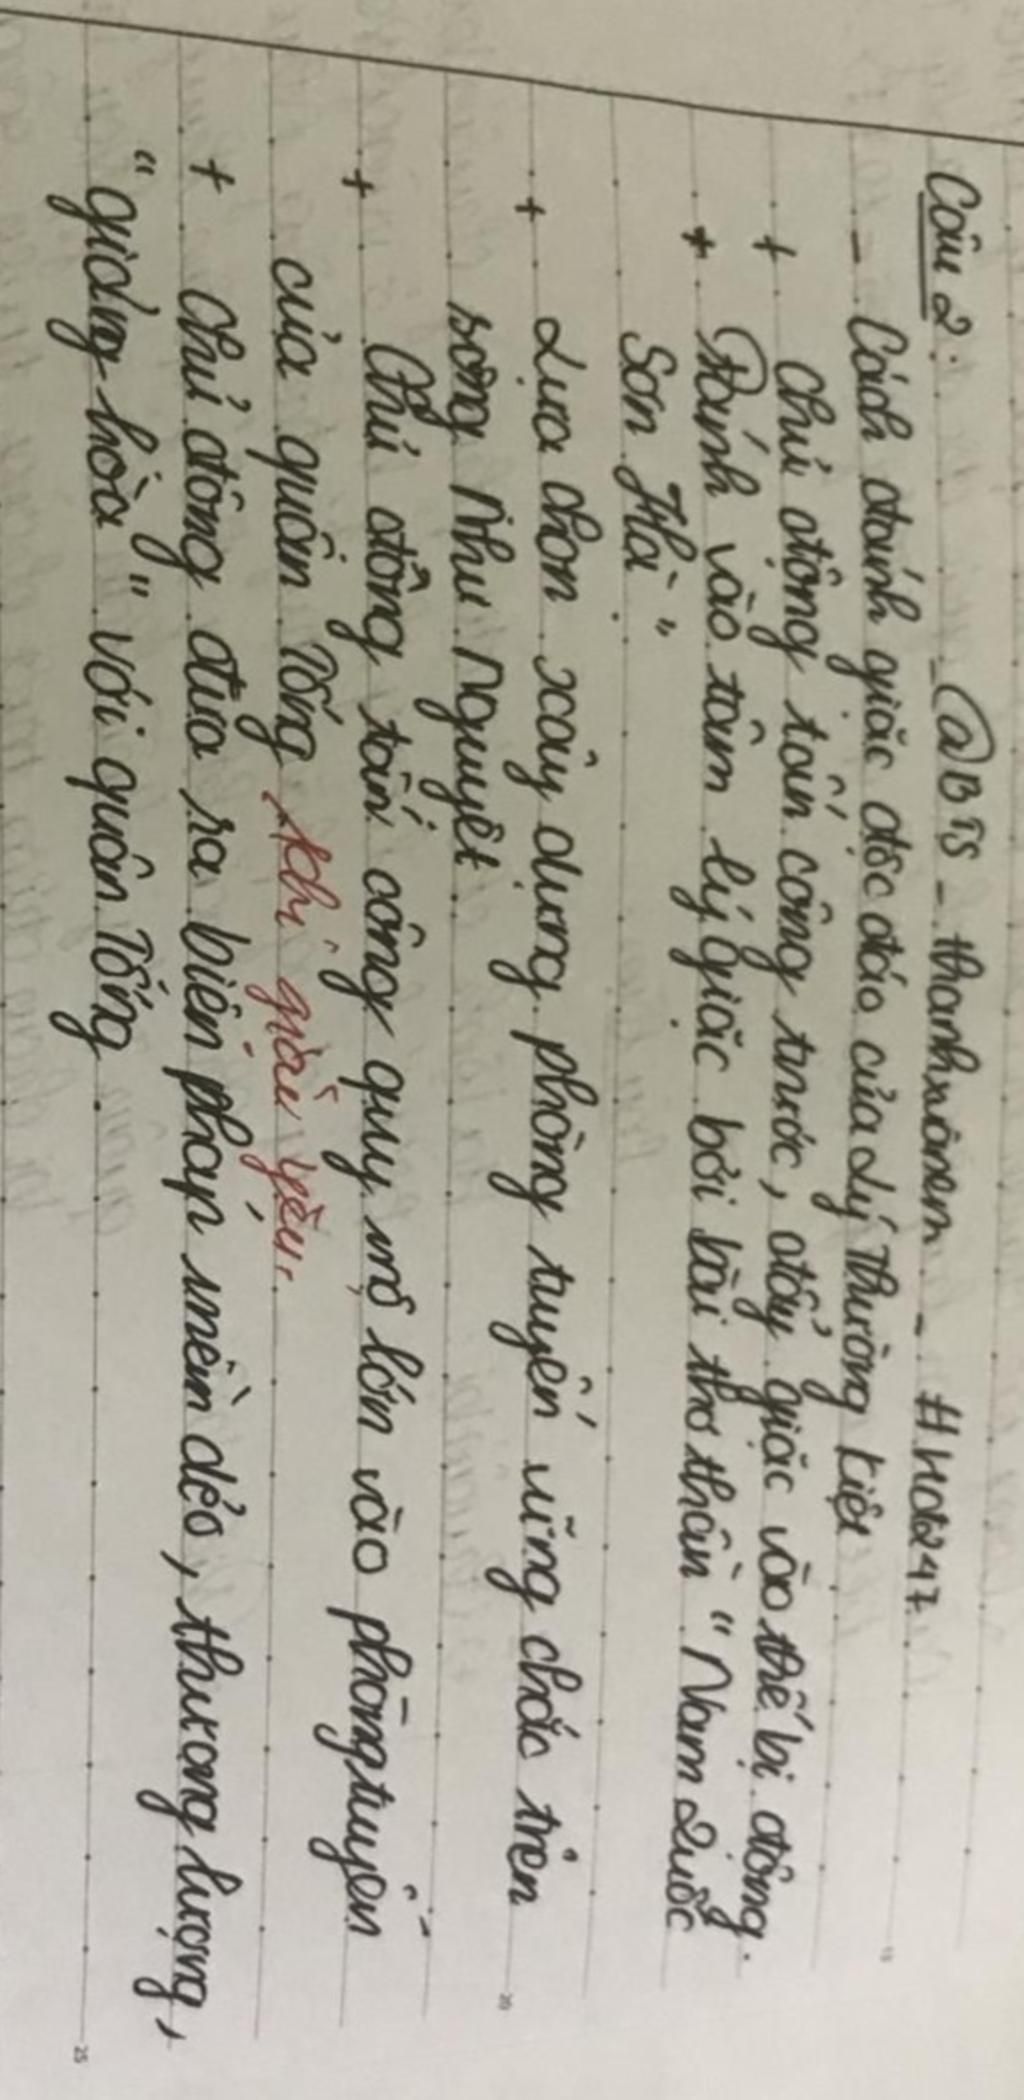 @BTS - thanhxuânem - #Hoc247
Câu 2:
- Cách đánh giặc độc đáo của Lý Thường Kiệt
+ Chủ động tấn công trước, đẩy giặc vào thế bị động.
+ Đánh vào tâm lý giặc bởi bài thơ thần "Nam Quốc
Sơn Hà"
+ Lựa chọn xây dựng phòng tuyến vững chắc trên
sông Như Nguyệt.
+ Chủ động tấn công quy mô lớn vào phòng tuyến
của quân Tống khi giặc yếu.
+ Chủ động đưa ra biện pháp mềm dẻo, thương lượng,
"giảng hòa" với quân Tống.
15
20
25